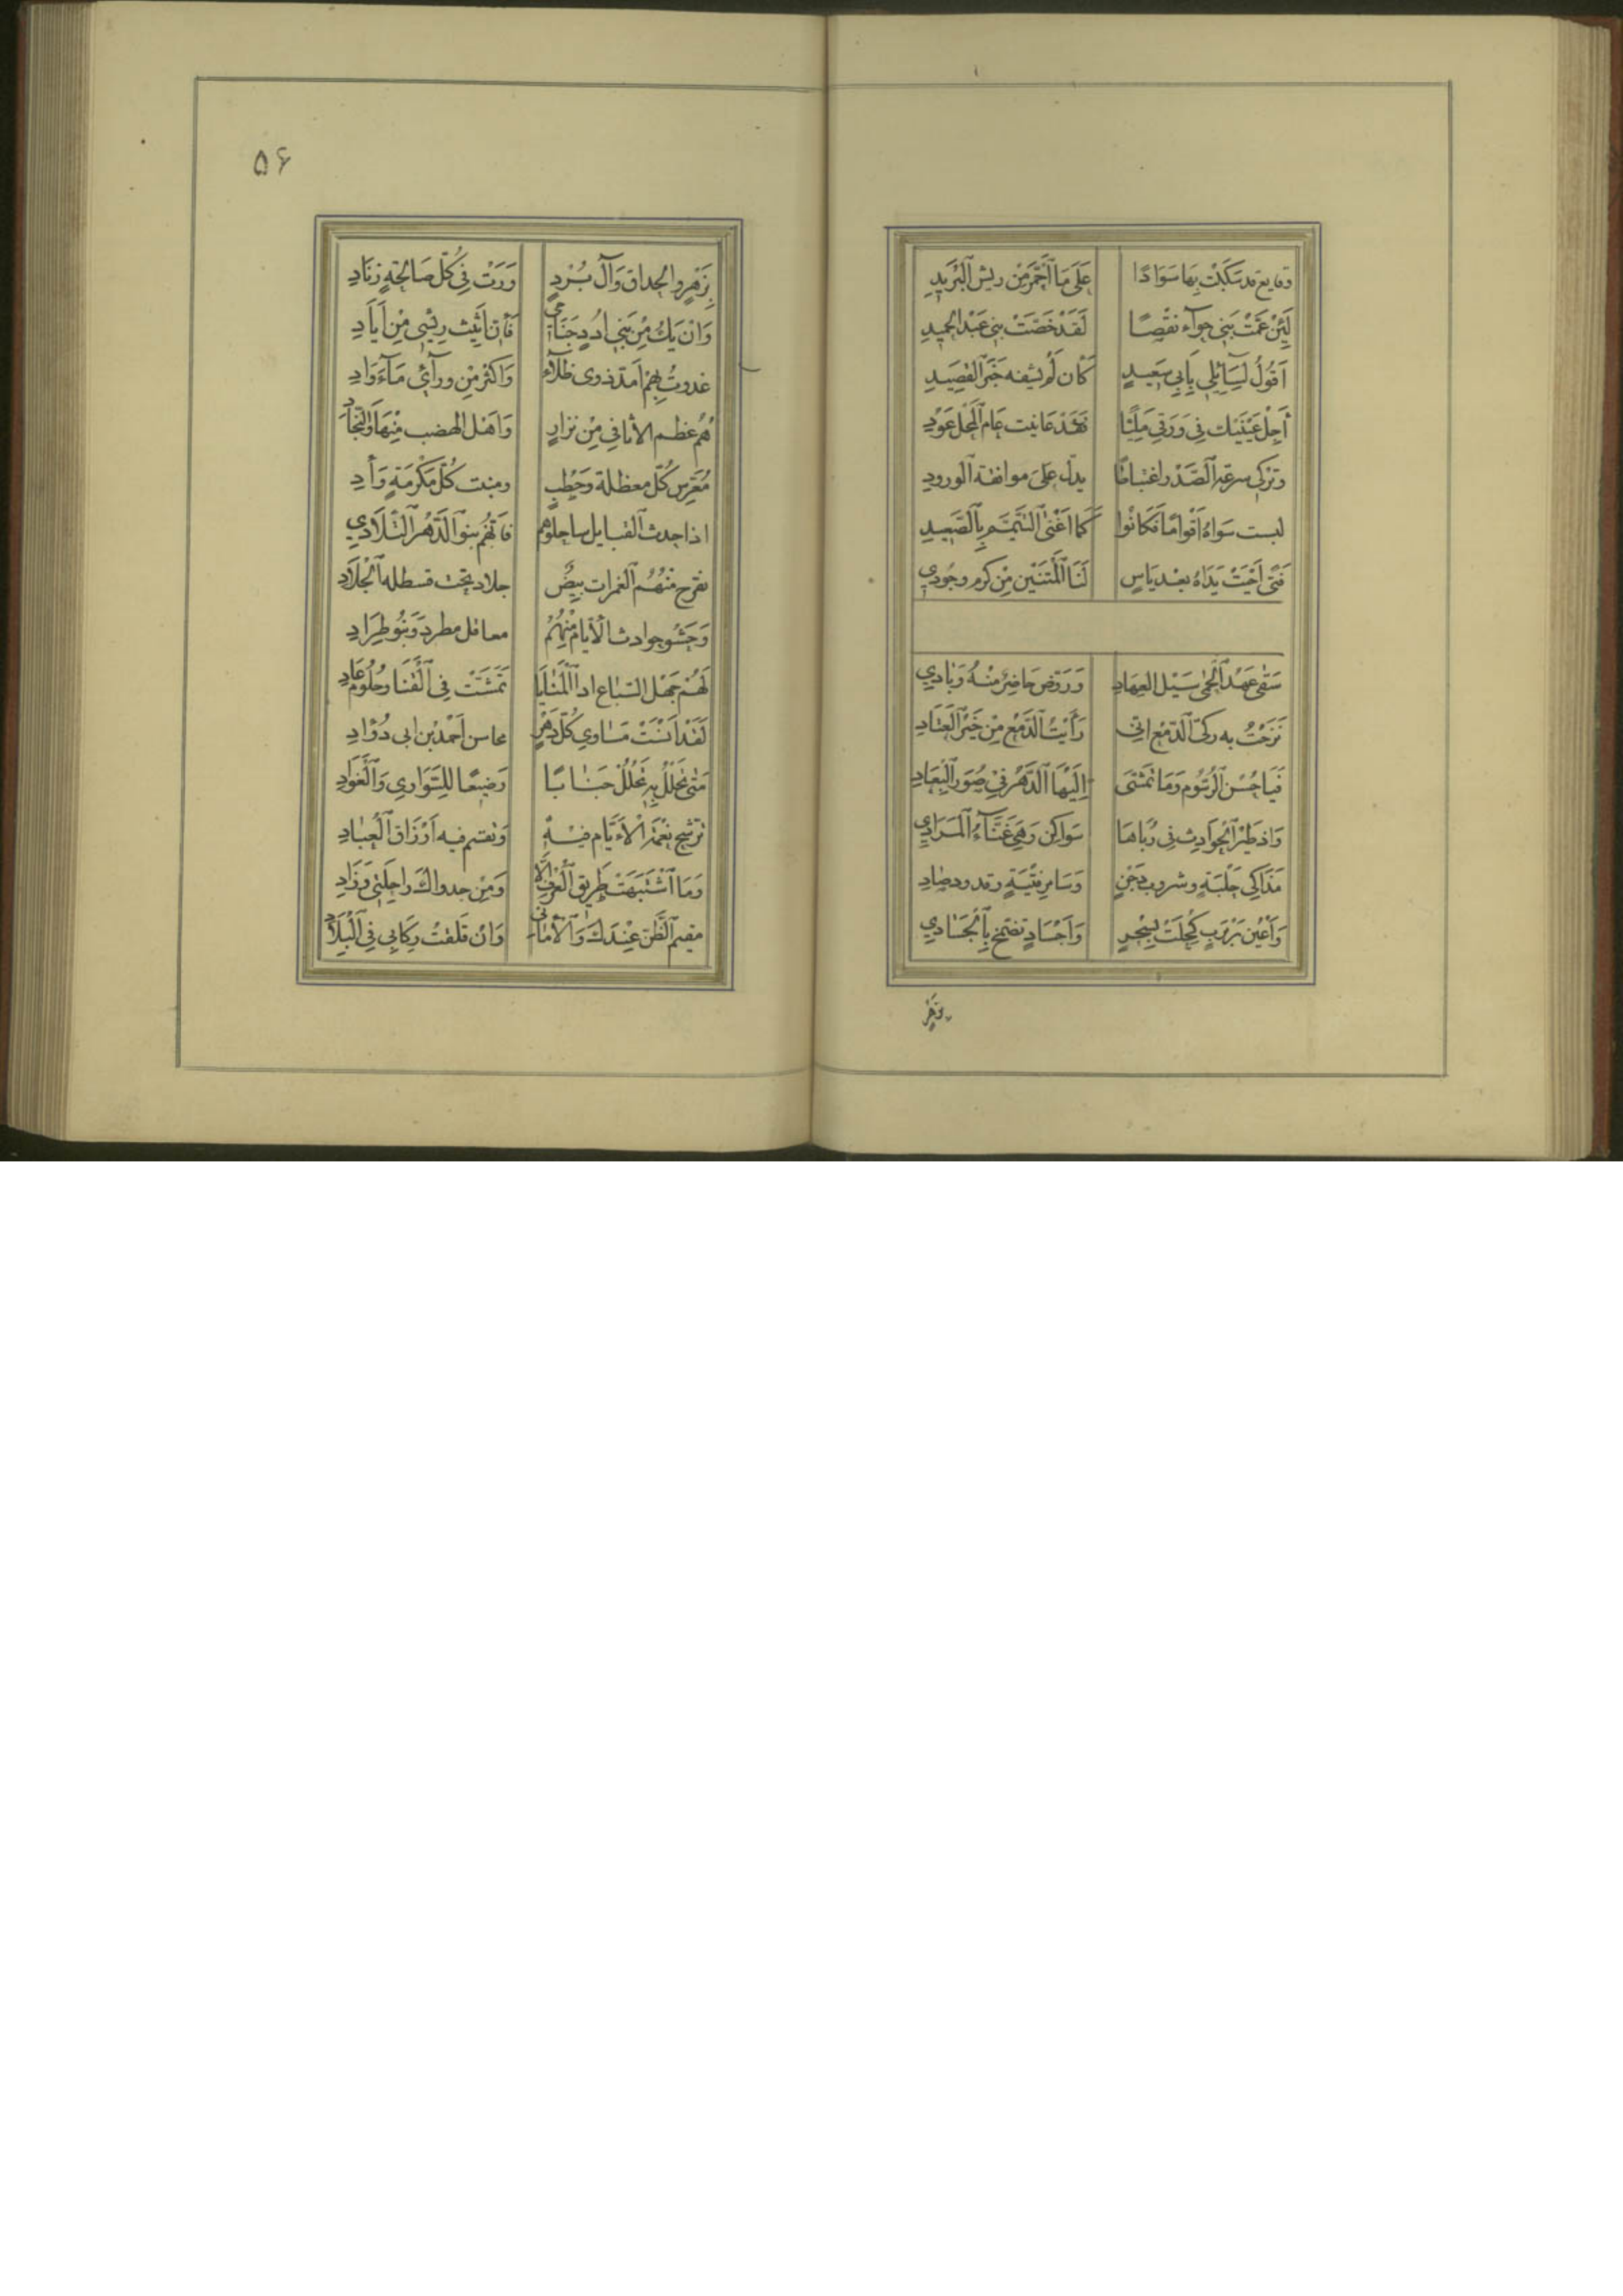 وقايع قد سَكَبْتَ بِهَا سَوَادًا عَلَى مَا ٱحْمَرَّ مِنْ ريشِ ٱلبَرِيدِ
لَئِنْ عَمَّتْ بَنِي حوآء نَفْعًا لَقَدْ خَصَّتْ بني عَبْدِ الحميدِ
اَقُولُ لِسَآئِلِي بِأَبِي سَعِيدٍ كَأن لَمْ يشفه خَبَرُ القَصِيدِ
أَجِلْ عَيْنَيْكَ فِي وَرَقِي مَلِيًّا فَقَدْ عَاينت عَامَ ٱلمَحْلِ عُودِي
وتَرْكِي سرعة ٱلصَّدْرِ اغتباطًا يدل عَلَى موافقة ٱلورودِ
لبست سَوَاهُ اَقْوامًا فَكَانُوا كَمَا اَغْنَى التَّيَمُّم بِٱلصَّعِيدِ
فَتًى اَحْيَتْ يَدَاهُ بعْدَ يَاسٍ لَنَا ٱلمَيِّتَيْنِ مِنْ كَرم وجُودِي
سَقَى عَهْدَ ٱلحِمَى سَيْلُ العِهَادِ وَرَوَّضَ حَاضِرٌ مِنْهُ وَبَادِي
نَزَحْتُ به رَكِيّ ٱلدَّمْع اني رَأَيْتُ ٱلدَّمْع مِنْ خَيْرِ ٱلعَتَادِ
فَيَا حُسْنَ ٱلرُّسُوم وَمَا تَمَشَّى اِلَيْهَا ٱلدَّهْرُ فِي صُوَرِ ٱلبِعَادِ
وَاذ طَيْرُ ٱلحَوادِث فِي رُبَاهَا سَوَاكِن وَهِيَ غَنَّآءُ ٱلمَرَادِي
مَذَاكِي حَلْبَةٍ وشروب دَجْنٍ وَسَامِر فِتْيَةٍ وقدور صاد
وَاَعْيُن رَبْرَبٍ كُحِلَتْ بِسِحْرٍ وَاَجْسَادٍ تضمخ بِٱلجَسَادِي
بزهر
۵۶
بِزَهْرٍ والحذاق وَآلِ بُرْدٍ وَرَتْ فِي كُلِّ صَالِحَةٍ زِنَادِ
وَاِنْ يَكُ مِنْ بَنِي اُدَدٍ جَنَاحِي فَأن اَثِيثَ رِيشِي مِن أَيَادِ
غدوتُ بِهِمْ اَمَدَّ ذوى ظلآء وَاَكثَر مَنْ ورآئي مَآء وَادِ
هُمُ عُظْم الأثافي مِنْ نِزَارٍ وَاَهْل الهضب مِنْهَا وَالنِّجَادِ
مُعَرَّس كُلّ معظلة وَخَطْبٍ ومنبت كُلّ مَكْرُمَةٍ وَأدِ
اذا حدث ٱلقبايل ساجلوهم فَاِنَّهُم بنوا ٱلدَّهْرِ ٱلتِّلَادِي
تفرج مِنْهُم ٱلغمرات بِيضٌ جلاد تحت قسطله ٱلجِلَادِ
وَحَشْو حوادث ٱلأيّام مِنْهُمْ معاقل مطرد وَبَنُو طِرَادِ
لَهُمْ جَهْل السّباع اذا ٱلمَنَايَا تَمَشَّتْ فِي ٱلقَنَا وَحُلُوم عَادِ
لَقَدْ اَنْسَتْ مَسَاوِي كُلّ دَهْرٍ محاسن اَحْمَد بْن ابى دُؤادِ
مَتى تَحْلُلْ بِهِ تَحْلُلْ جَنابًا رَضِيعًا لِلسَّوَارِي وَٱلغَوَادِ
ترشح نِعْمَة الأَيَّام فيهِ وَتقسم فيه اَرْزَاق ٱلعِبَادِ
وَمَا ٱشْتَبَهَتْ طَرِيق ٱلعُرْفِ الّا
مقيم ٱلظَّن عِنْدَكَ وَٱلأمانى وَاِن قَلقت رِكَابِي فِي ٱلبِلَادِ